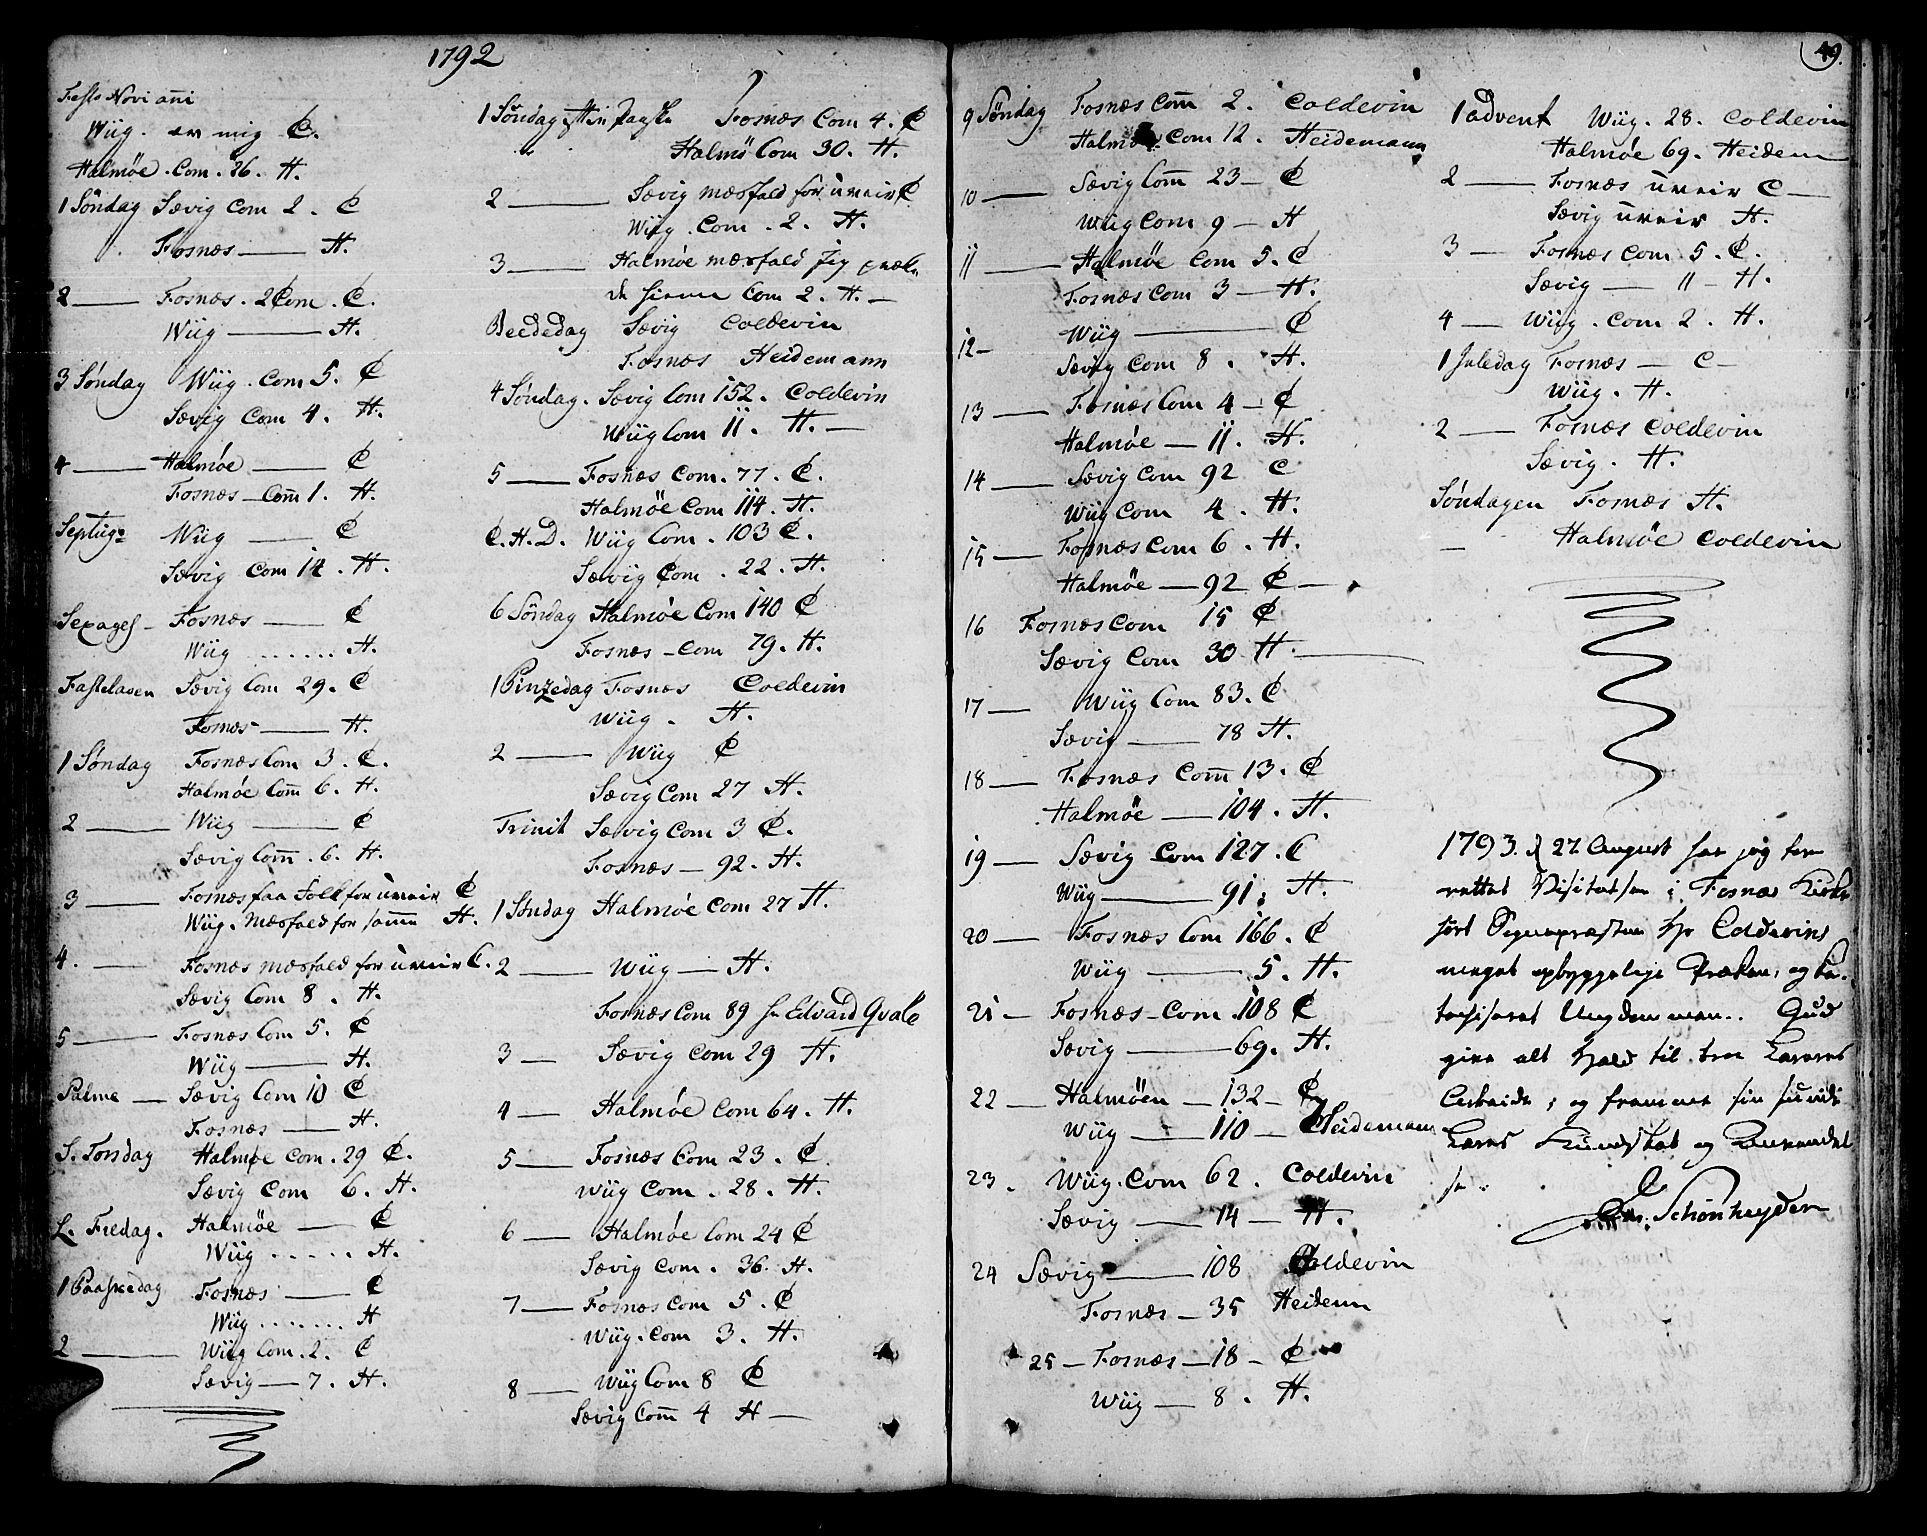 1792
Festo Novi ani
Wüg. av mig C.
Halmöe. Com. 26. H.
1 Söndag Sævig Com 2. C
Fosnæs — H.
2 — Fosnæs. 2 Com. C.
Wüg — H.
3 Søndag Wüg. Com 5. C
Sævig Com 4. H.
4 — Halmøe — C
Fosnæs — Com 1. H.
Septüg: Wüg — C
Sævig Com 14. H.
Sexages — Fosnæs — C
Wüg ...... H.
Fastelaven Sævig Com 29. C
Fosnæs — H.
1 Søndag Fosnæs Com 3. C.
Halmöe Com 6. H.
2 — Wüg — C
Sævig Com. 6. H.
3 — Fosnæs faa Folk for uveir C
Wüg. Mæsfald for samme H.
4. — Fosnæs mæsfald for uveir C.
Sævig Com 8. H.
5 — Fosnæs Com 5. C
Wüg — H.
Palme — Sævig Com 10 C
Fosnæs — H.
S. Torsdag Halmøe Com. 29 C.
Sævig Com 6. H.
L. Fredag. Halmöe — C
Wüg ..... H.
1 Paaskedag Fosnæs — C
Wüg ....... H
2 — Wüg Com. 2. C
Sævig — 7. H.
1 Söndag Fosnæs Com 4. C
Halmö Com 30. H.
2 — Sævig mæsfald for uveir C
Wüg. Com. 2. H.
3 — Halmöe mæsfald jeg
Com 2. H. —
Beededag Sævig Coldevin
Fosnæs Heidemann
4 Søndag. Sævig Com 152. Coldevin
Wüg Com 11. H. —
5 — Fosnæs Com. 77. C.
Halmöe Com 114. H.
C. H. D. Wüg Com. 103 C.
Sævig Com. 22. H.
6 Søndag Halmøe Com 140 C
Fosnæs — Com 79. H.
1 Pinzedag Fosnæs Coldevin
Wüg. H.
2 — Wüg C
Sævig Com 27 H.
Trinit Sævig Com 3 C.
Fosnæs — 92. H.
1 Söndag Halmøe Com 27 H.
2 — Wüg — H.
Fosnæs Com 89 Hr Edvard Qvale
3 — Sævig Com 29 H.
4 — Halmöe Com 64. H.
5 — Fosnæs Com 23. C
Wüg Com. 28. H.
6 — Halmøe Com 24 C
Sævig Com. 36. H.
7 — Fosnæs Com 5. C
Wüg. Com 3. H.
8 — Wüg Com 8 C
Sævig Com 4 H —
49.
9 Søndag Fosnæs Com 2. Coldevin
Halmøe Com 12. Heidemann
10 — Sævig Com 23 — C
Wüg Com 9 — H
11 — Halmöe Com 5. C
Fosnæs Com 3 — H.
12 — Wüg — C
Sævig Com 8. H.
13 — Fosnæs Com 4 — C
Halmøe — 11. H.
14 — Sævig Com 92 C
Wüg Com 4. H.
15 — Fosnæs Com 6. H.
Halmöe — 92 C —
16 Fosnæs Com 15 C
Sævig Com 30 H. —
17 — Wüg Com 83. C
Sævig — 78 H.
18 — Fosnæs Com 13. C
Halmöe — 104. H.
19 — Sævig Com 127. C
Wüg — 91. H.
20 — Fosnæs Com 166. C
Wüg — 5. H.
21 — Fosnæs — Com. 108 C
Sævig — 69. H.
22 — Halmöen — 132 — C
Wüg — 110 — Heidemann
23. Wüg. Com 62. Coldevin
Sævig — 14 — H.
24 Sævig — 108 Coldevin
Fosnæs — 35 Heidemn
25 — Fosnæs — 18 — C
Wüg — 8. H.
1 advent Wüg. 28. Coldevin
Halmöe 69. Heidem
2 — Fosnæs uveir C —
Sævig uveir H.
3 — Fosnæs Com. 5. C.
Sævig — 11 — H.
4 — Wüg. Com 2. H.
1 Juledag Fosnæs — C —
Wüg. H.
2 — Fosnæs Coldevin
Sævig. H.
Søndagen Fosnæs H.
— Halmöe Coldevin
1793. d 27 August har jeg for
rettet Visitatsen i Fosnæs Kirke
hört Sognepræsten Hr Coldevins
meget opbyggelige Præken, og ca-
techiseret Ungdommen. Gud
give alt Held til troe Læreres
Arbeide, og fremme sin sunde
Læres Kundskab og Anvendel
se.
Schönheyder